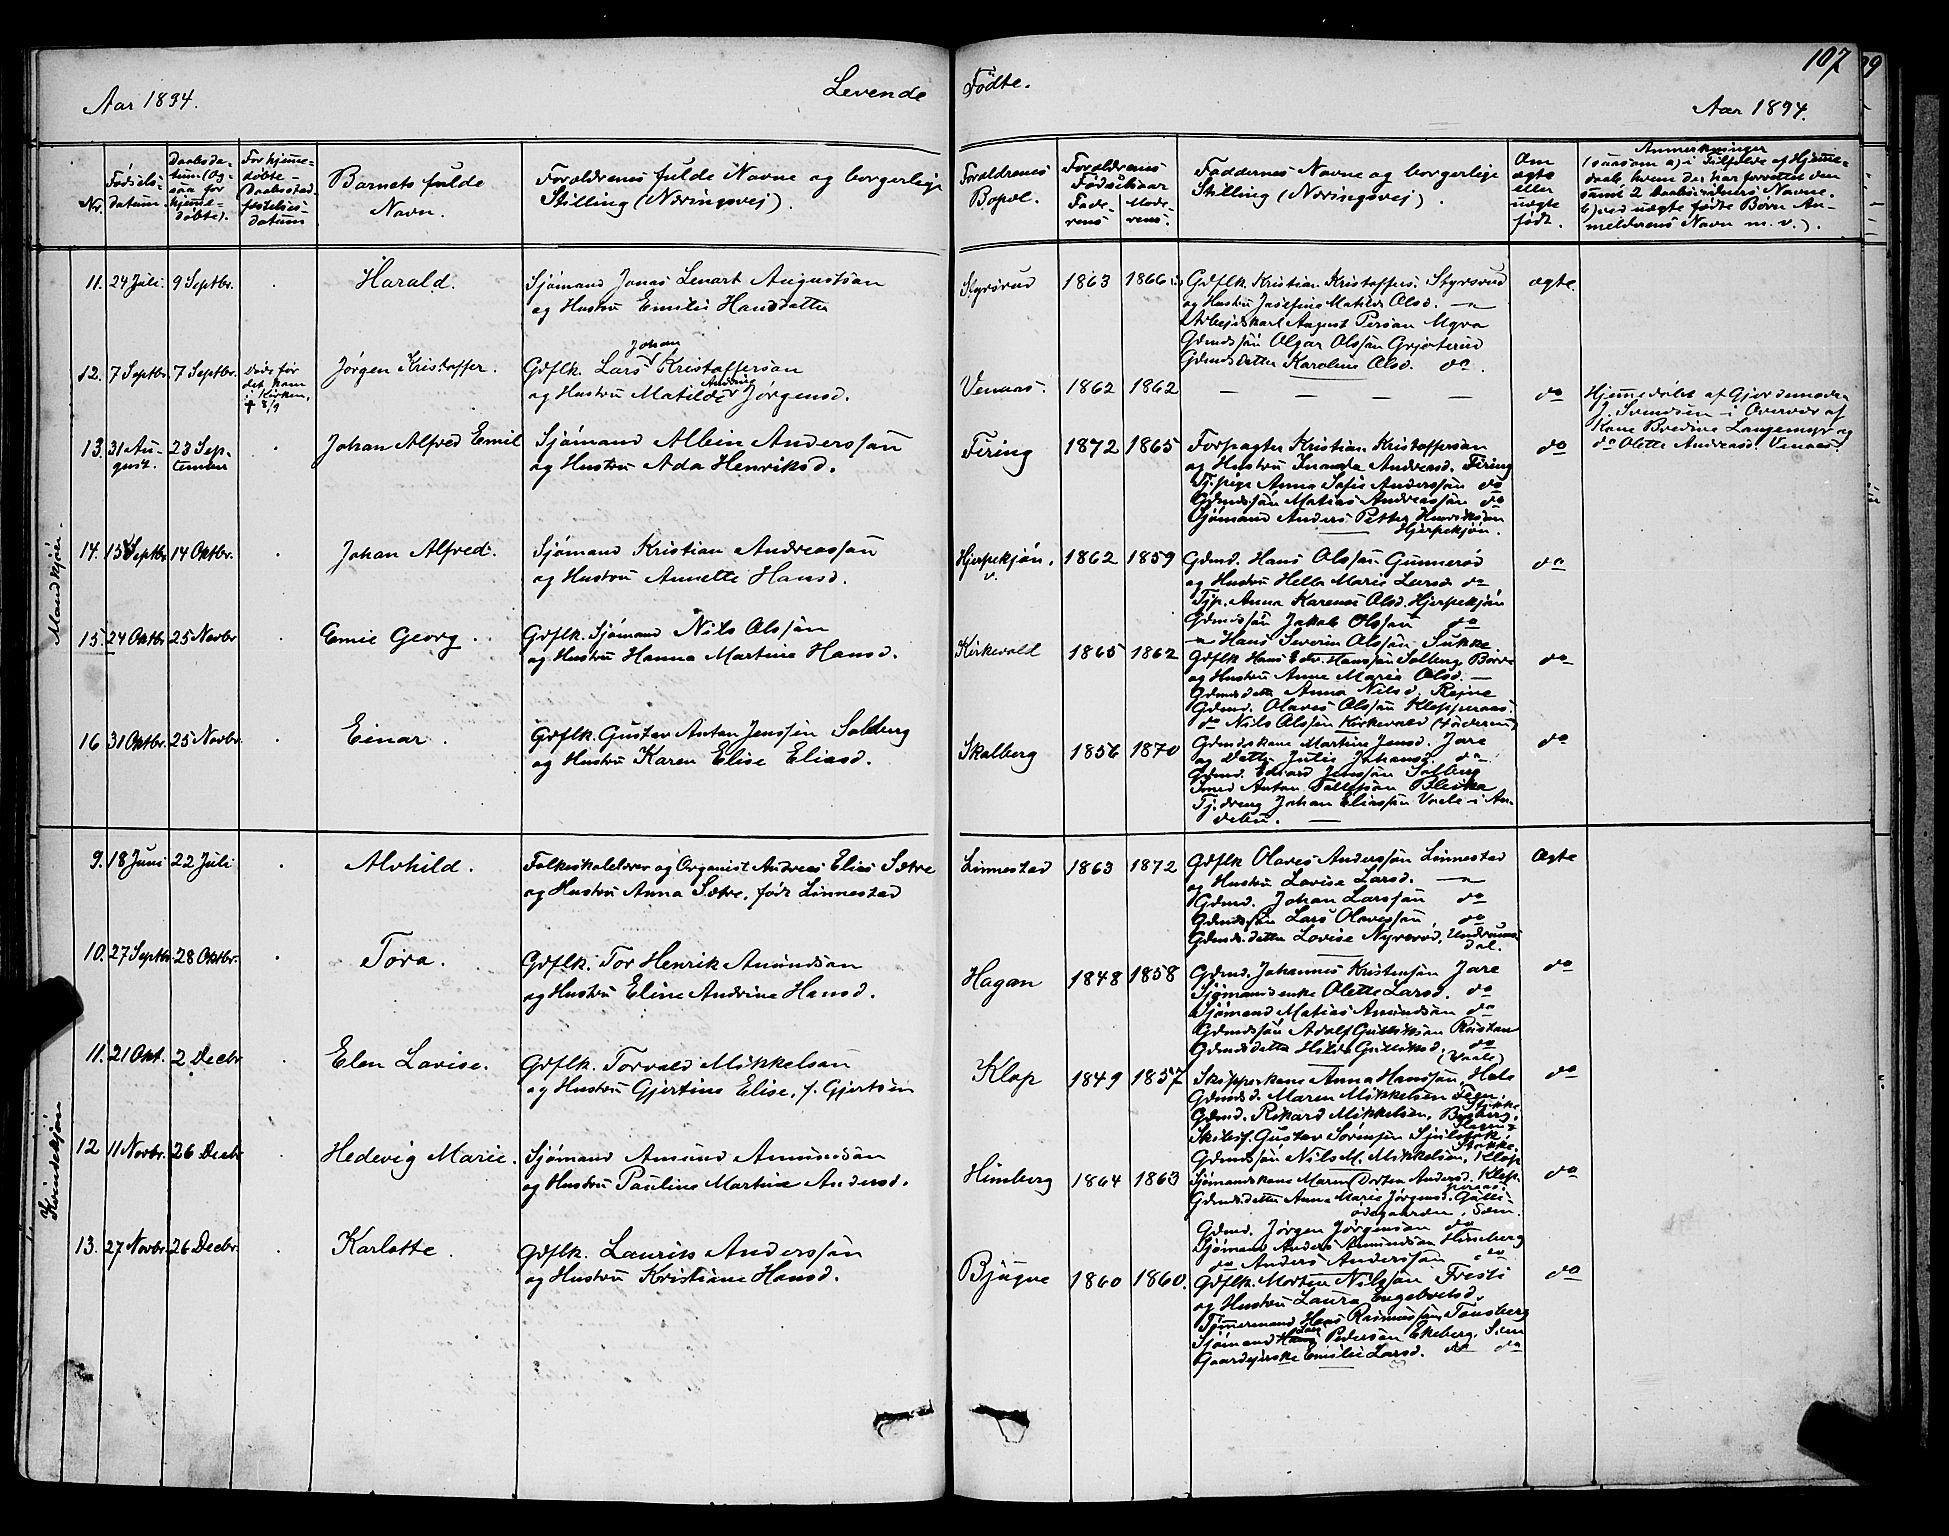 107
29
Aar 1894.
Levende
Fødte.
Aar 1894.
Nr.
Fødsels-
datum.
Daabsda-
tum (og-
saa for
hjemme-
døbte).
For hjemme-
døbte-
Daabsstad-
fæstelses-
datum
Barnets fulde
Navn.
Forældrenes fulde Navne og borgerlige
Stilling (Næringsvej).
Forældrenes
Bopæl.
Forældrenes
Fødselsaar
Fade-
rens
Mode-
rens.
Faddernes Navne og borgerlige
Stilling (Næringsvej).
Om
ægte
eller
uægte
født.
Anmerkninger
(saasom a) i Tilfælde af Hjemme-
daab hvem der har forrettet den
samt 2 Daabsvidners Navne.
b) ved uægte fødte Børn An-
melderens Navn m. v.).
Mandkjøn.
11. 24 Juli. 9 Septbr. Harald. Sjømand Jonas Lenart Augustsøn
og Hustru Emilie Hansdatter
Styrsrud 1863 1866 Gdflk Kristian Kristoffers. Styrsrud ægte
og Hustru Josefine Matilde Olsd.
Arbejdskarl August Persøn Myra
Gdmdssøn Olgar Olssøn Grjøterud
Gdmdsdatter Karoline Olsd. do.
12. 7 Septbr. 7 Septbr. Døde før
det kom
i Kirken,
† 8/9
Jørgen Kristoffer. Gdflk. Lars Johan Kristoffersøn
og Hustru Matilde Andrine Jørgensd.
Venaas. 1862 1862 — — — — do
Hjemmedøbt af Gjordemoder
J. Svendsen i Overvær af
Kone Bredine Langemyr og
do Olette Andreasd. Venaas.
13. 31 Au-
gust. 23 Sep-
tember Johan Alfred Emil Sjømand Albin Anderssøn
og Hustru Ada Henriksd.
Firing 1872 1865 Forpagter Kristian Kristoffersøn do
og Hustru Andreasd. Firing
Tj.pige Anna Sofie Anderssøn do
Gdmdssøn Matias Andreassøn do
Sjømand Anders Petter Henriksøn
Hjerpekjøn.
14. 15 Septbr 14 Oktbr. Johan Alfred. Sjømand Kristian Andreassøn
og Hustru Annette Hansd.
Hjerpekjøn. 1862 1859 Gdmd. Hans Olssøn Gunnerød do
og Hustru Helle Marie Larsd. do
Tjp. Anna Karense Olsd. Hjerpekjøn
Gdmdssøn Jakob Olssøn do
Hans Severin Olssøn Sukke
15. 24 Oktbr 25 Novbr Emil Georg. Gdflk. Sjømand Nils Olssøn
og Hustru Hanna Martine Hansd.
Kirkevold 1865 1862 Gdflk Hans Edv. Hanssøn Solberg Borre do
og Hustru Anne Marie Olsd. —
Gdmdsdatter Anna Nilsd. Rejne
Gdmd. Olaves Olssøn Klopperaas.
do Nils Olssøn Kirkevold (Faderen)
16 31 Oktbr. 25 Novbr. Einar. Gdflk. Gustav Anton Jenssøn Solberg
og Hustru Karen Elise Eliasd.
Skalberg 1856 1870 Gdmdskone Martine Jensd. Jare do
og Datter Julie Johansd. do
Gdmd. Edvard Jenssøn Solberg
Smed Anton Tollefsøn Bleika
Tj.dreng Johan Eliassøn Vaale i An-
debu. —
Kvindekjøn
9. 18 Juni 22 Juli Alvhild. Folkeskolelærer og Organist Andreas Elias Sætre
og Hustru Anna Sætre, født Linnestad
Linnestad 1863 1872 Gdflk Olaves Anderssøn Linnestad Ægte
og Hustru Lovise Larsd.
Gdmd. Johan Larssøn do
Gdmdssøn Lars Olavessøn do
Gdmdsdatter Lovise Nyrerød, Undrums-
dal.
10. 27 Septbr. 28 Oktbr. Tora. Gdflk. Tor Henrik Amundsøn
og Hustru Eline Andrine Hansd.
Hagan 1848 1858 Gdmd. Johannes Kristensøn Jare do
Sjømandsenke Olette Larsd. do
Sjømand Matias Amundsøn do
Gdmdssøn Adolf Gulliksøn Røistan
Gdmdsdatter Hilda Gulliksd. do
(Vaale)
11. 21 Okt. 2 Decbr Elen Lovise. Gdflk. Torvald Mikkelsøn
og Hustru Gjertine Elise, f. Gjertsen
Klop 1849 1857 Skipperkone Anna Hanssøn, Hals do
Gdmdsd. Maren Mikkelsen Fegn,
Stokke
Gdmd. Rikard Mikkelsen, Byberg,
Skolesf. Gustav Sørensen
Stokke
Gdmdssøn Nils M. Mikkelsen, Klop
12 11 Novbr. 26 Decbr Hedevig Marie. Sjømand Amund Amundsøn
og Hustru Pauline Martine Andersd.
Himberg 1864 1863 Sjømandskone Maren Dorthea Andersd. Klop- do
peraas.
Gdmdsdatter Anna Marie Jørgensd. Galli-
ødegaarden, Sem.
Gdmd. Jørgen Jørgensøn do
Sjømand Anders Amundsøn Himberg
do Anders Anderssøn do
13. 27 Novbr. 26 Decbr. Karlotte. Gdflk. Laurits Anderssøn
og Hustru Kristiane Hansd.
Bjugne 1860 1860. Gdflk. Morten Nilssøn Fresti do
og Hustru Laura Engebretsd.
Tømmermand Hans Rasmussøn, Tønsberg
Sjømand Lars Pedersøn Ekeberg. Sem
Gaardejerske Emilie Larsd. do do